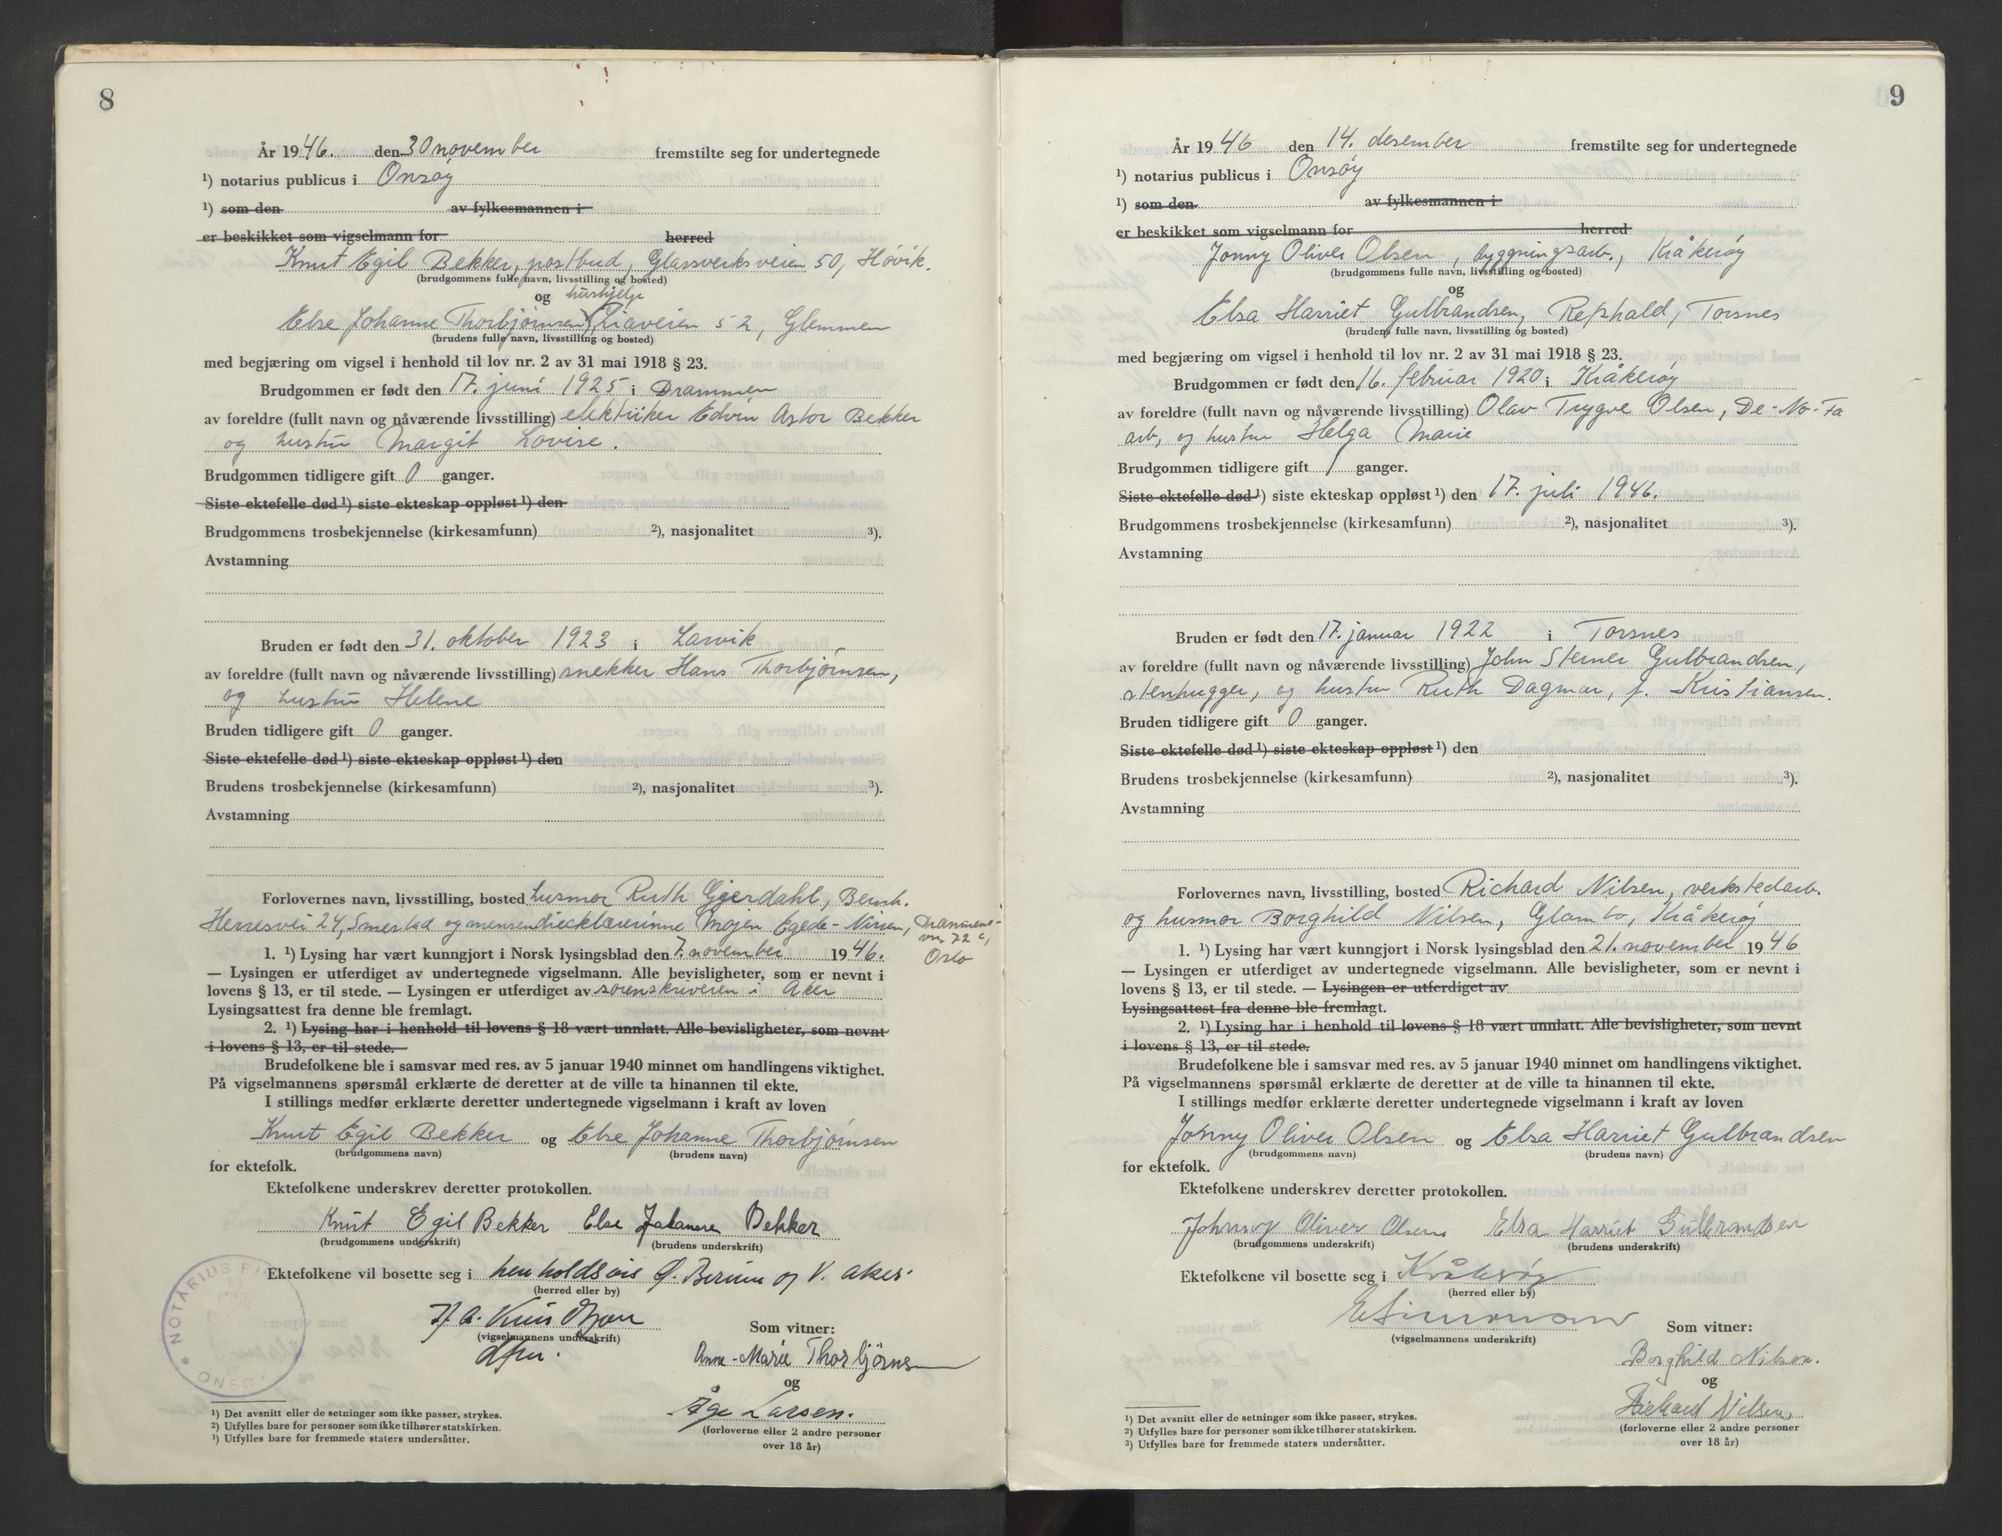 8
År 1946. den 30 november fremstilte seg for undertegnede
¹) notarius publicus i Onsøy
¹) som den av fylkesmannen i
er beskikket som vigselmann for herred
Knut Egil Bekker, postbud, Glassverksveien 50, Høvik.
(brudgommens fulle navn, livsstilling og bosted)
og hushjelp
Else Johanne Thorbjørnsen, Liaveien 52, Glemmen
(brudens fulle navn, livsstilling og bosted)
med begjæring om vigsel i henhold til lov nr. 2 av 31 mai 1918 § 23.
Brudgommen er født den 17. juni 1925 i Drammen
av foreldre (fullt navn og nåværende livsstilling) elektriker Edvin Astor Bekker
og hustru Margit Lovise.
Brudgommen tidligere gift 0 ganger.
Siste ektefelle død ¹) siste ekteskap oppløst ¹) den
Brudgommens trosbekjennelse (kirkesamfunn) ²), nasjonalitet ³).
Avstamning
Bruden er født den 31. oktober 1923 i Larvik
av foreldre (fullt navn og nåværende livsstilling) snekker Hans Thorbjørnsen,
og hustru Helene
Bruden tidligere gift 0 ganger.
Siste ektefelle død ¹) siste ekteskap oppløst ¹) den
Brudens trosbekjennelse (kirkesamfunn) ²), nasjonalitet ³).
Avstamning
Forlovernes navn, livsstilling, bosted husmor Ruth Gjerdahl, Bernh.
Herresvei 24, Smestad og mensendiecklærerinne Mojen Egede-Nissen, Drammens-
vn. 72 c,
1. ¹) Lysing har vært kunngjort i Norsk lysingsblad den 7. november 1946. Oslo
— Lysingen er utferdiget av undertegnede vigselmann. Alle bevisligheter, som er nevnt i
lovens § 13, er til stede. — Lysingen er utferdiget av sorenskriveren i Aker
Lysingsattest fra denne ble fremlagt.
2. ¹) Lysing har i henhold til lovens § 18 vært unnlatt. Alle bevisligheter, som nevnt
i lovens § 13, er til stede.
Brudefolkene ble i samsvar med res. av 5 januar 1940 minnet om handlingens viktighet.
På vigselmannens spørsmål erklærte de deretter at de ville ta hinannen til ekte.
I stillings medfør erklærte deretter undertegnede vigselmann i kraft av loven
Knut Egil Bekker og Else Johanne Thorbjørnsen
(brudgommens navn) (brudens navn)
for ektefolk.
Ektefolkene underskrev deretter protokollen.
Knut Egil Bekker Else Johanne Bekker
(brudgommens underskrift) (brudens underskrift)
Ektefolkene vil bosette seg i henholdsvis Ø. Bærum og V. Aker.
(herred eller by)
(vigselmannens underskrift)
Som vitner:
Anne-Marie Thorbjørnsen
og
Åge Larsen.
(forloverne eller 2 andre personer
over 18 år)
NOTARIUS
¹) Det avsnitt eller de setninger som ikke passer, strykes.
²) Utfylles bare for personer som ikke tilhører statskirken.
³) Utfylles bare for fremmede staters undersåtter.
9
År 1946 den 14. desember fremstilte seg for undertegnede
¹) notarius publicus i Onsøy
¹) som den av fylkesmannen i
er beskikket som vigselmann for herred
Jonny Oliver Olsen, byggningsarb., Kråkerøy
(brudgommens fulle navn, livsstilling og bosted)
og
Elsa Harriet Gulbrandsen, Refshald, Torsnes
(brudens fulle navn, livsstilling og bosted)
med begjæring om vigsel i henhold til lov nr. 2 av 31 mai 1918 § 23.
Brudgommen er født den 16. februar 1920 i Kråkerøy
av foreldre (fullt navn og nåværende livsstilling) Olav Trygve Olsen, De-No-Fa
arb, og hustru Helga Marie
Brudgommen tidligere gift 1 ganger.
Siste ektefelle død ¹) siste ekteskap oppløst ¹) den 17. juli 1946.
Brudgommens trosbekjennelse (kirkesamfunn) ²), nasjonalitet ³).
Avstamning
Bruden er født den 17. januar 1922 i Torsnes
av foreldre (fullt navn og nåværende livsstilling) John Sterner Gulbrandsen,
stenhugger, og hustru Ruth Dagmar, f. Kristiansen.
Bruden tidligere gift 0 ganger.
Siste ektefelle død ¹) siste ekteskap oppløst ¹) den
Brudens trosbekjennelse (kirkesamfunn) ²), nasjonalitet ³).
Avstamning
Forlovernes navn, livsstilling, bosted Richard Nilsen, verkstedarb.
og husmor Borghild Nilsen, Glombo, Kråkerøy
1. ¹) Lysing har vært kunngjort i Norsk lysingsblad den 21. november 1946
— Lysingen er utferdiget av undertegnede vigselmann. Alle bevisligheter, som er nevnt i
lovens § 13, er til stede. — Lysingen er utferdiget av
Lysingsattest fra denne ble fremlagt.
2. ¹) Lysing har i henhold til lovens § 18 vært unnlatt. Alle bevisligheter, som nevnt
i lovens § 13, er til stede.
Brudefolkene ble i samsvar med res. av 5 januar 1940 minnet om handlingens viktighet.
På vigselmannens spørsmål erklærte de deretter at de ville ta hinannen til ekte.
I stillings medfør erklærte deretter undertegnede vigselmann i kraft av loven
Jonny Oliver Olsen og Elsa Harriet Gulbrandsen
(brudgommens navn) (brudens navn)
for ektefolk.
Ektefolkene underskrev deretter protokollen.
Johnny Oliver Olsen Elsa Harriet Gulbrandsen
(brudgommens underskrift) (brudens underskrift)
Ektefolkene vil bosette seg i Kråkerøy
(herred eller by)
(vigselmannens underskrift)
Som vitner:
Borghild Nilsen.
og
Richard Nilsen,
(forloverne eller 2 andre personer
over 18 år)
¹) Det avsnitt eller de setninger som ikke passer, strykes.
²) Utfylles bare for personer som ikke tilhører statskirken.
³) Utfylles bare for fremmede staters undersåtter.